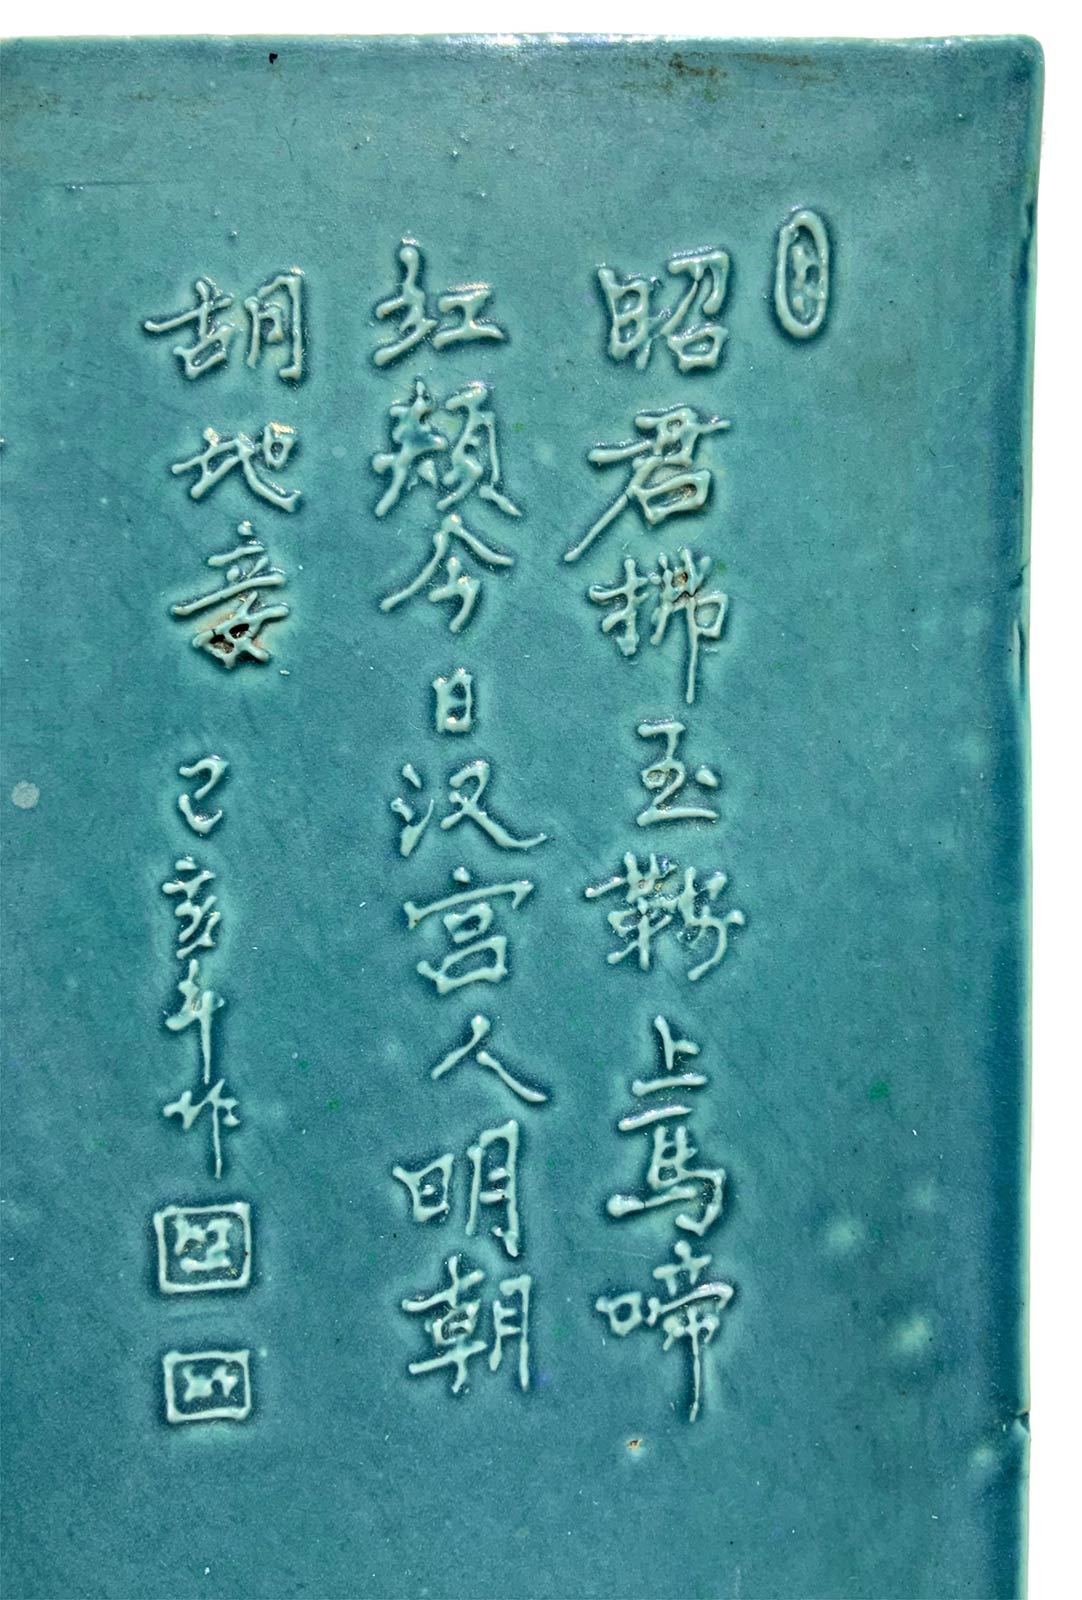 昭君拂玉鞍上馬啼
紅頰今日汉宫人明朝
胡地妾 己亥年作